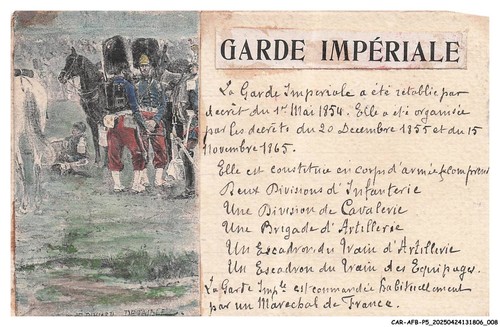 GARDE IMPÉRIALE
La Garde Imperiale a été retablie par
decrèt du 1er Mai 1854. Elle a eté organisée
par les decrèts du 20 Decembre 1855 et du 15
Novembre 1865.
Elle est constituée en corps d'armée &
Deux Divisions d'Infanterie
Une Division de Cavalerie
Une Brigade d'Artillerie
Un Escadron du Train d'Artillerie
Un Escadron du Train des Equipages.
La Garde Imple est commandée habituellement
par un Marechal de France.
EDOUARD DETAILLE
CAR-AFB-P5_20250424131806_008